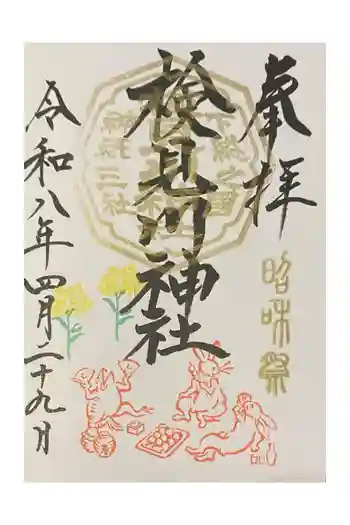 奉拝
昭和祭
下総之国
検見川神社
神祇三社
令和八年四月二十九日